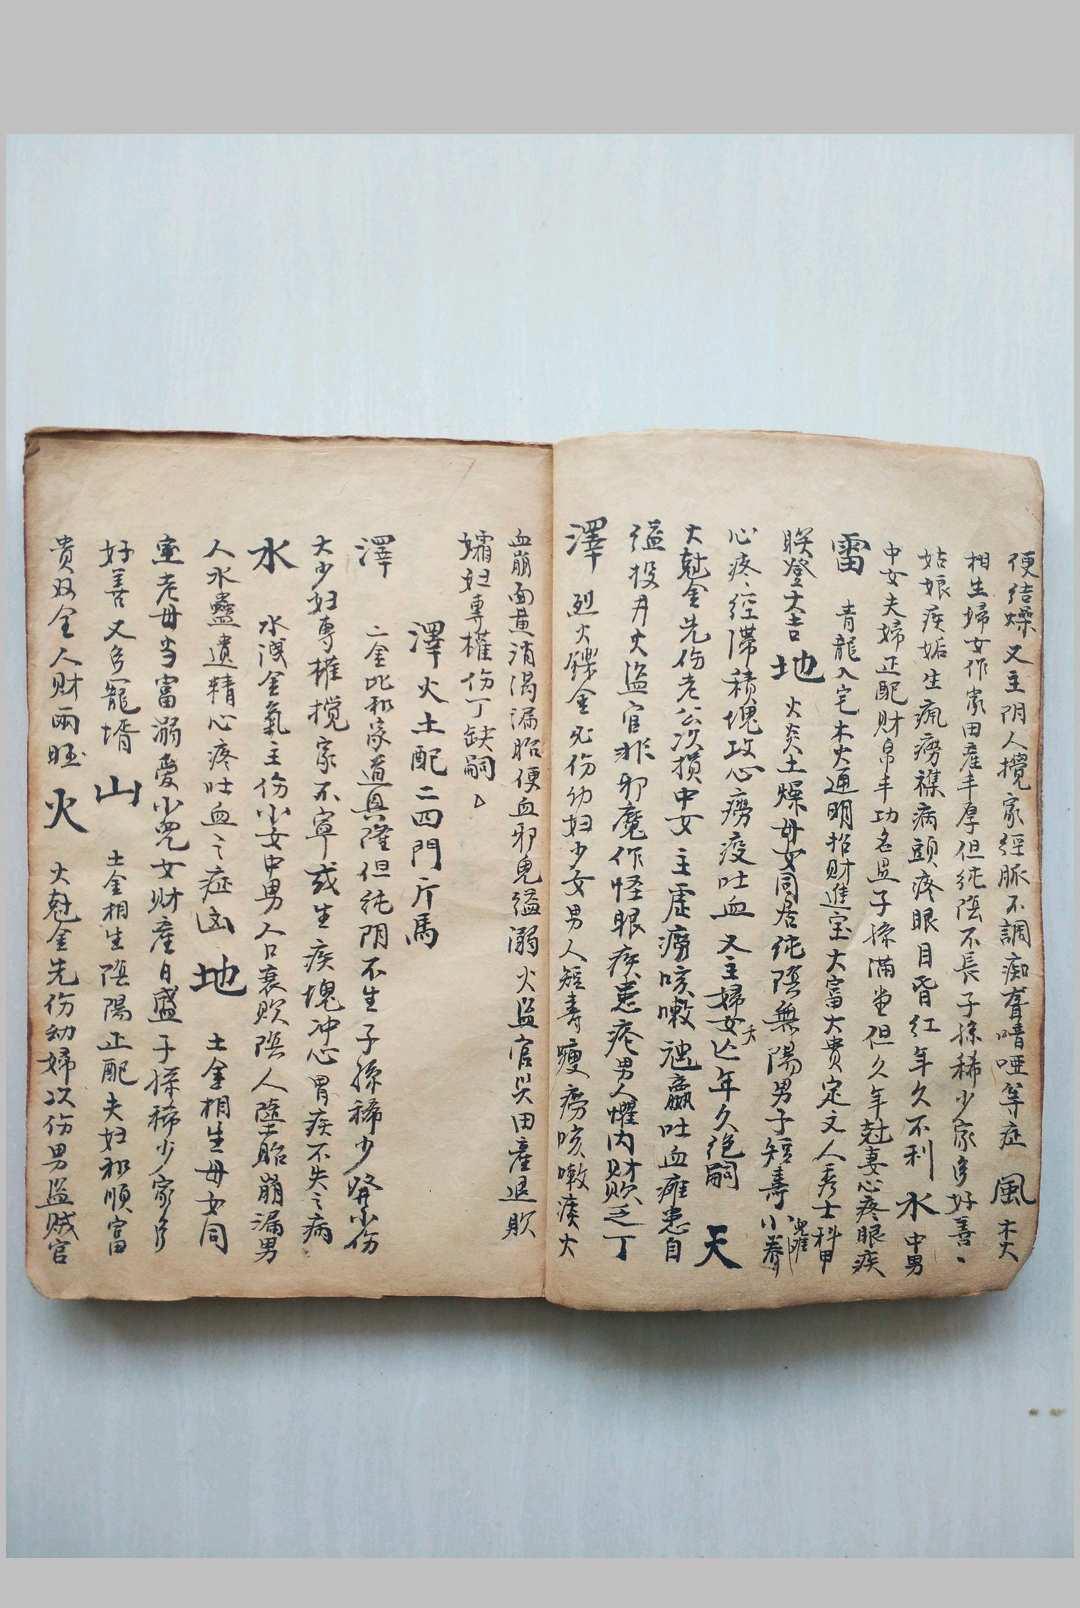 便结燥又主阴人攪家經脈不調痴聾喑啞等症 風 木火
相生婦女作家田產丰厚但純陰不長子孫稀少家多好善、
姑娘疾妬生瘋癆襍病頭疼眼目昏红年久不利 水 中男
中女夫婦正配财帛丰功名显子孫滿堂但久年尅妻心疼眼疾
雷 青龍入宅木火通明招财進宝大富大貴定文人秀士科甲
联登大吉 地 火炎土燥母女同居純陰無陽男子短壽小養
心疼經滞積塊攻心癆疫吐血又主婦女亡年久绝嗣 天
火尅金先伤老公次損中女主虚癆咳嗽 吐血癱患自
缢投井火盗官非邪魔作怪眼疾患疮男人懼内财败乏丁
澤 烈火鑠金必伤幼妇少女男人短壽癆咳嗽痰火
血崩面黄消渴漏胎便血邪鬼缢溺火盗官災田產退败
孀妇專權伤丁缺嗣
澤火土配二四門斤馬
澤 二金比和家道興隆但纯阴不生子孫稀少 伤
大少妇專權搅家不寧或生疾塊冲心胃疾不失之病
水 水洩金氣主伤少女中男人口衰败陰人墮胎崩漏男
人水蠱遺精心疼吐血之症凶 地 土金相生母女同
室老母当富溺愛小兒女财產日盛子孫稀少家多
好善又多寵壻 山 土金相生陰陽正配夫妇和順富
贵双全人财兩旺 火 火尅金先伤幼婦次伤男盗贼官